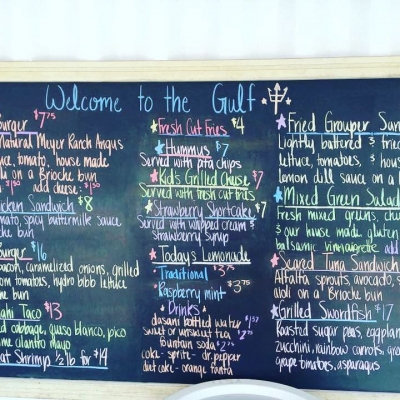 Welcome to the Gulf
Burger $7.25
Natural Meyer Ranch Angus
tomato, house made
on a Brioche bun
$1.50 add cheese: $1.50
Sandwich $8
spicy buttermilk sauce
bun
Burger $16
caramelized onions, grilled
tomatoes, hydro bibb lettuce
bun
Taco $13
cabbage, queso blanco, pico
cilantro mayo
Shrimp 1/2 lb for $14
Fresh Cut Fries $4
Hummus $7
Served with pita chips
Kid's Grilled Cheese $7
Served with fresh cut fries
Strawberry Shortcake $7
Served with whipped cream &
Strawberry Syrup
Today's Lemonade
Traditional $3.75
Raspberry mint $3.75
Drinks
dasani bottled water $1.37
sweet or unsweet tea
fountain soda
coke - sprite - dr. pepper
diet coke - orange fanta
Fried Grouper
Lightly battered & fried
lettuce, tomatoes, & house
lemon dill sauce on a
Mixed Green Salad
Fresh mixed greens,
& our house made gluten
balsamic vinaigrette
Seared Tuna Sandwich
Alfalfa sprouts, avocado,
aioli on a Brioche bun
Grilled Swordfish $17
Roasted sugar peas, eggplant
zucchini, rainbow carrots,
grape tomatoes, asparagus